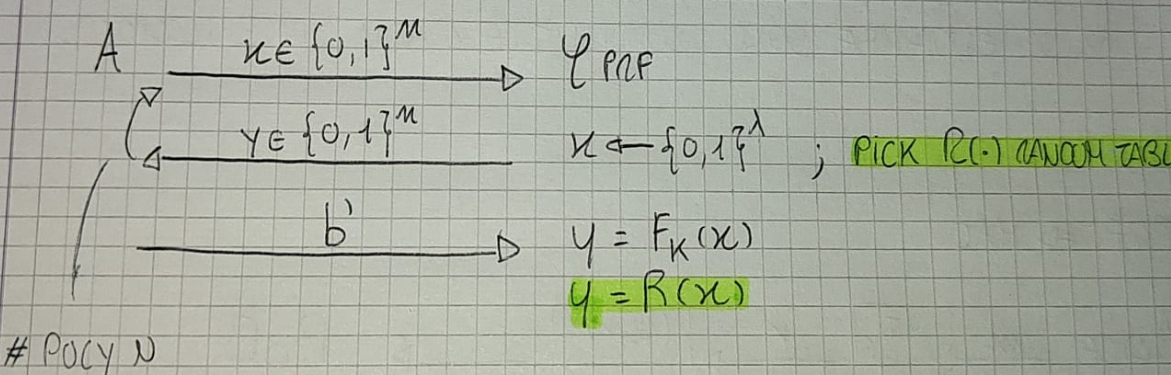 A x ∈ {0,1}^n φ PRF
y ∈ {0,1}^n x ← {0,1}^λ ; PICK R(·) RANDOM TABL
b' y = F_K(x)
y = R(x)
# POLY N